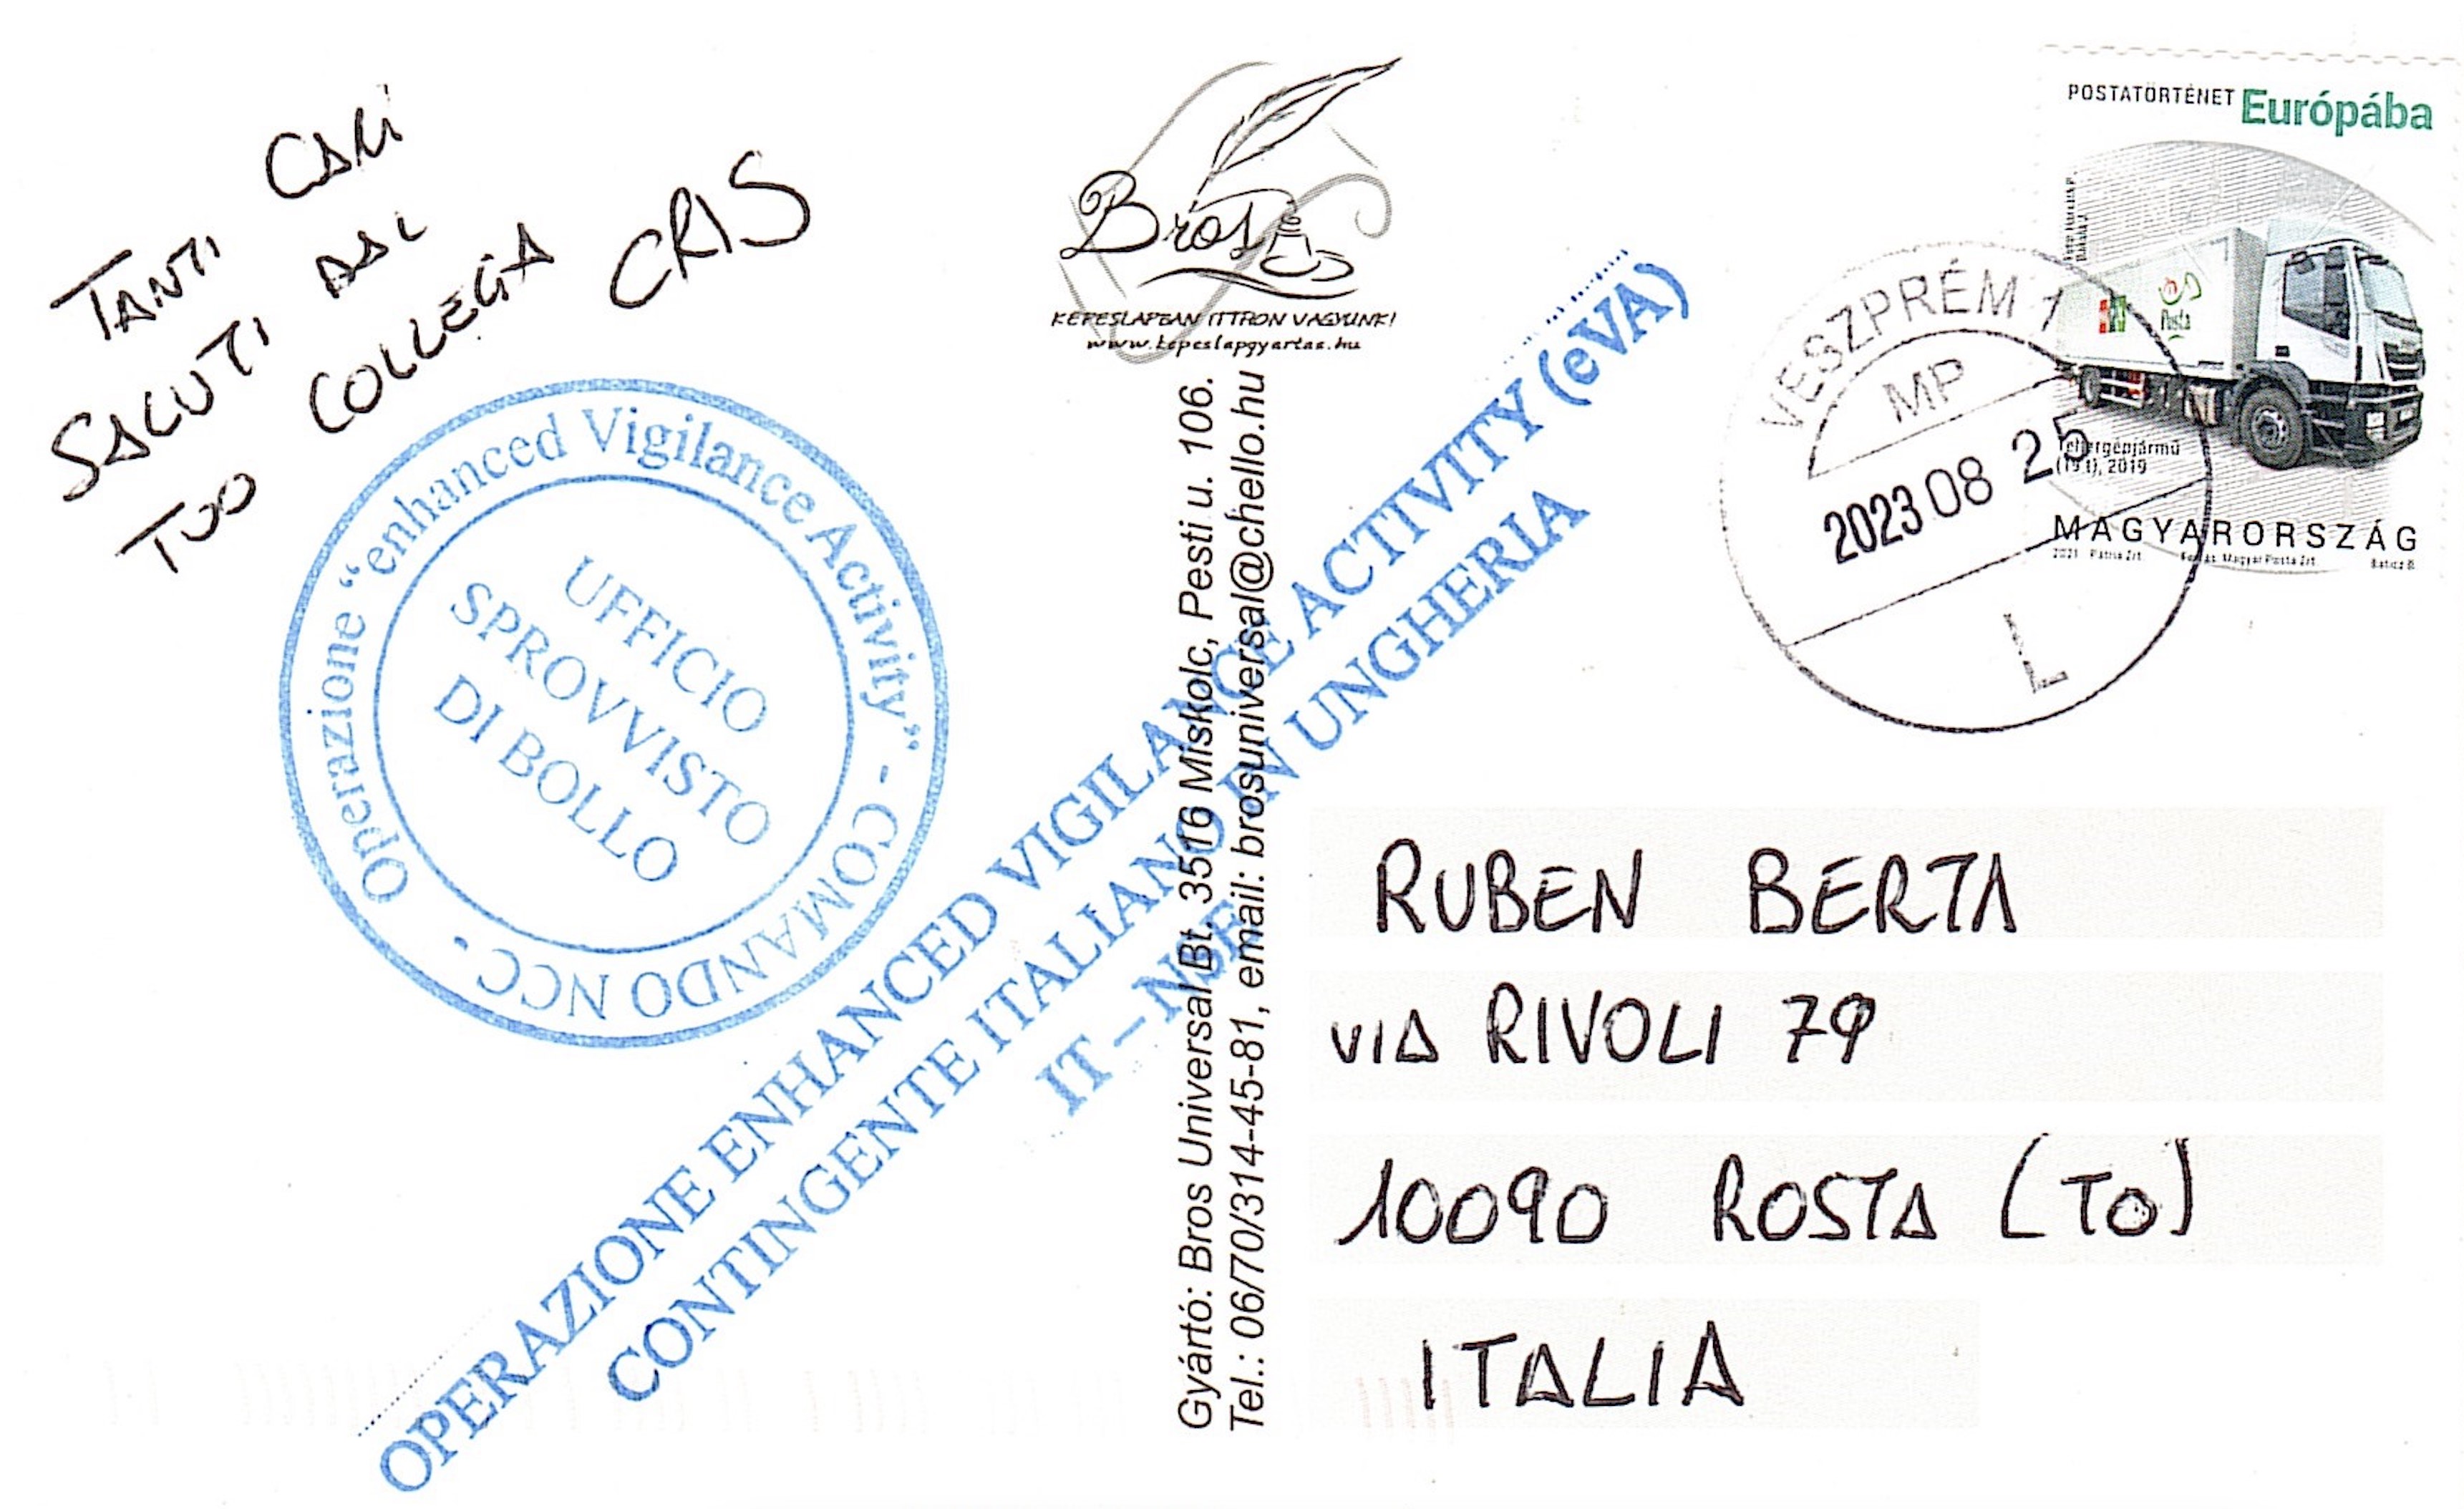 TANTI CARI
SALUTI DAL
TUO COLLEGA CRIS
Operazione "enhanced Vigilance Activity" - COMANDO NCC -
UFFICIO
SPROVVISTO
DI BOLLO
Bros
KÉPESLAPBAN ITTHON VAGYUNK!
www.kepeslapgyartas.hu
Gyártó: Bros Universal Bt. 3516 Miskolc, Pesti u. 106.
Tel.: 06/70/314-45-81, email: brosuniversal@chello.hu
OPERAZIONE ENHANCED VIGILANCE ACTIVITY (eVA)
CONTINGENTE ITALIANO IN UNGHERIA
IT – NSE
POSTATÖRTÉNET Európába
Posta
Tehergépjármű
(19 t), 2019
MAGYARORSZÁG
2021 Pátria Zrt. Magyar Posta Zrt. Baticz B.
VESZPRÉM 1
MP
2023 08 25
L
RUBEN BERTA
VIA RIVOLI 79
10090 ROSTA (TO)
ITALIA